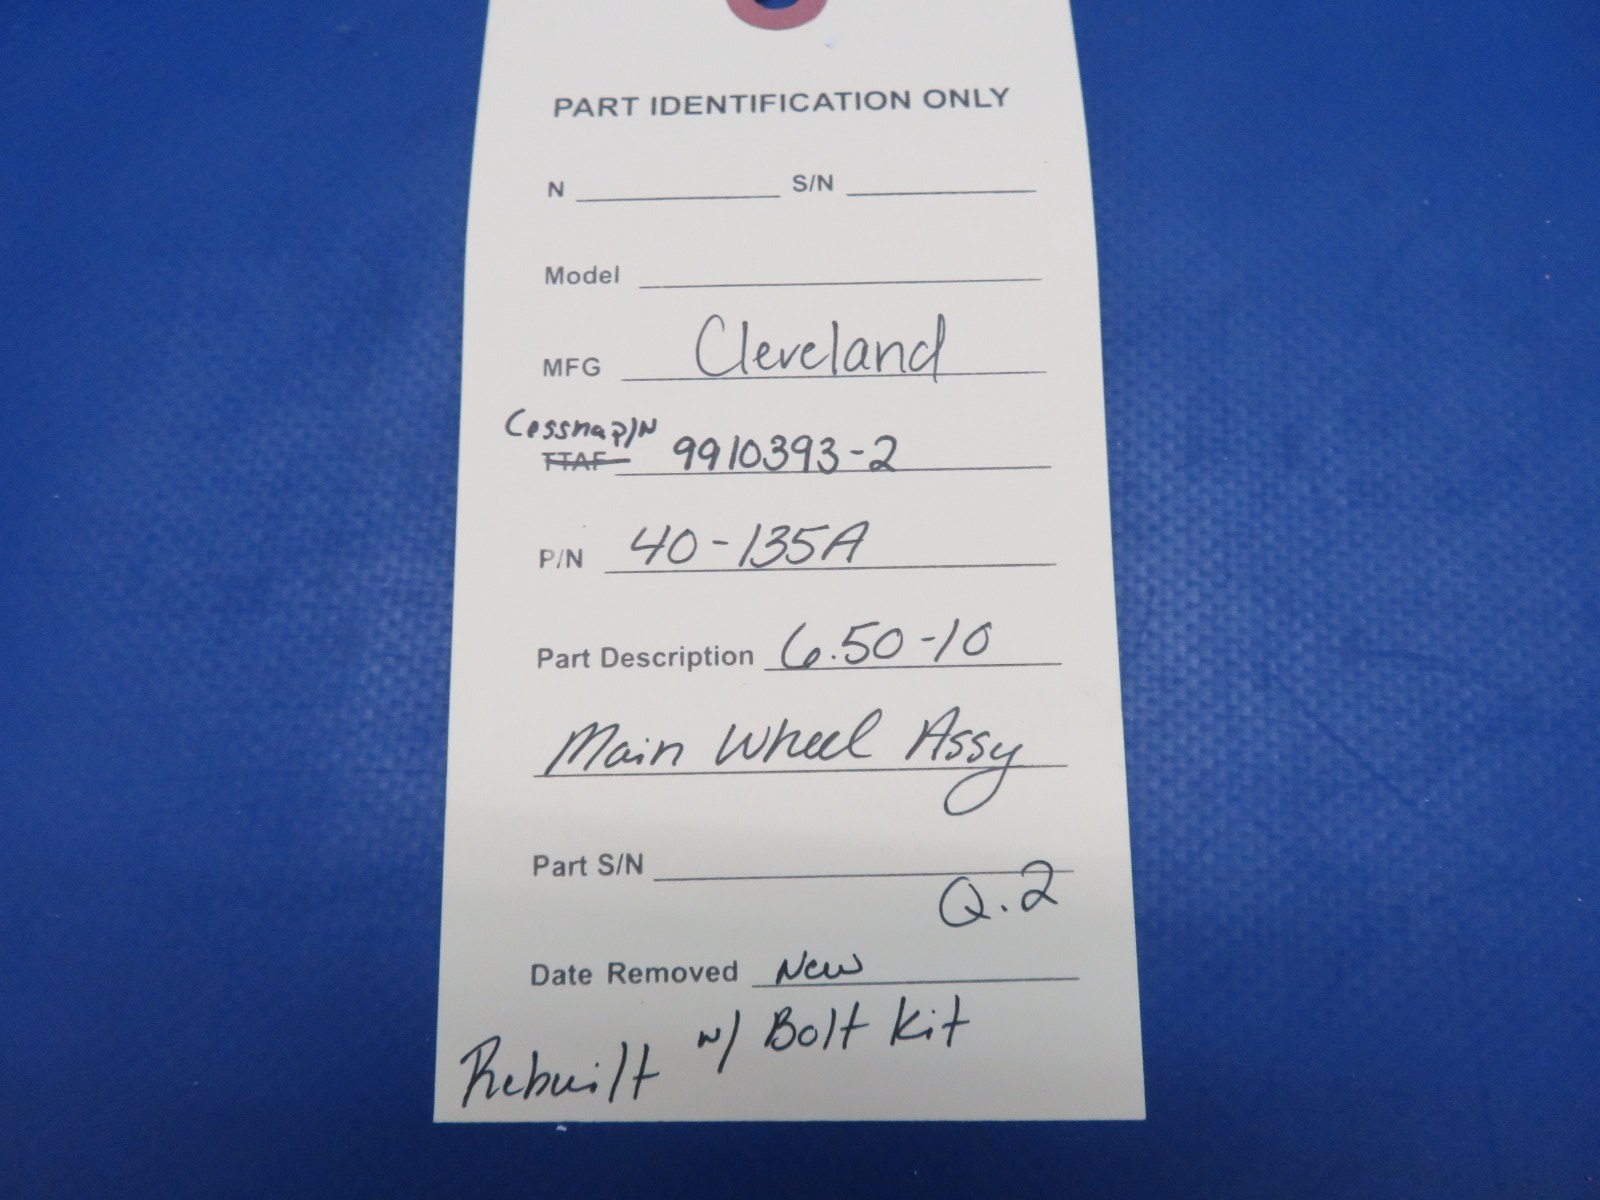 PART IDENTIFICATION ONLY
N S/N
Model
MFG Cleveland
Cessna P/N
TTAF 9910393-2
P/N 40-135A
Part Description 6.50-10
Main Wheel Assy
Part S/N
Q.2
Date Removed New
Rebuilt w/ Bolt Kit